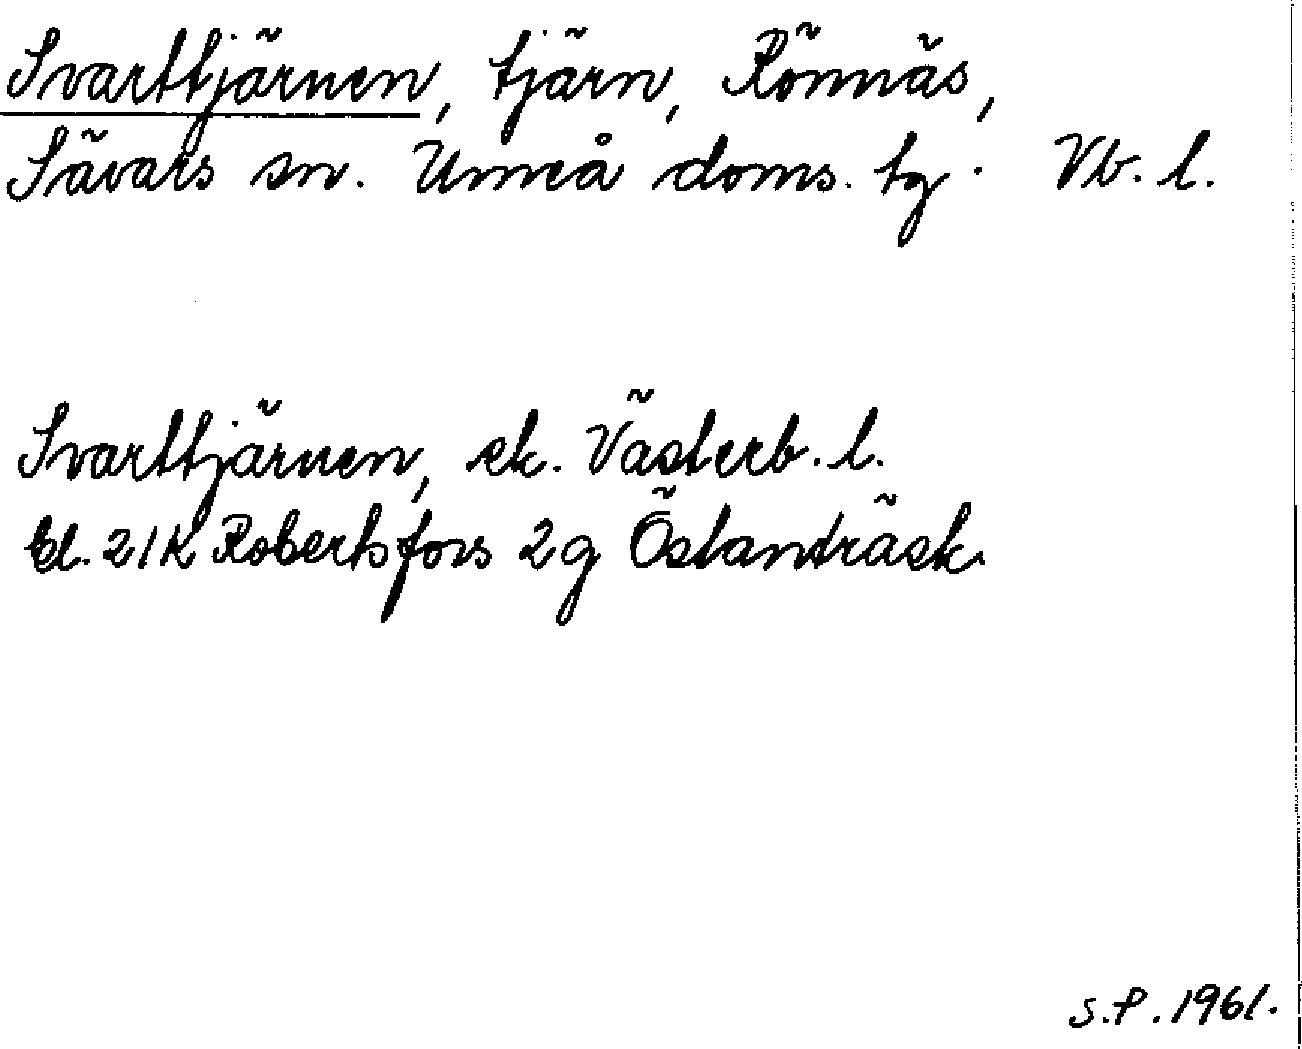 Svarttjärnen, tjärn, Rönnäs,
Sävars sn. Umeå doms. tg. Vb. l.
Svarttjärnen, ek. Västerb. l.
bl. 21K Robertsfors 2g Östanträsk.
S.P. 1961.